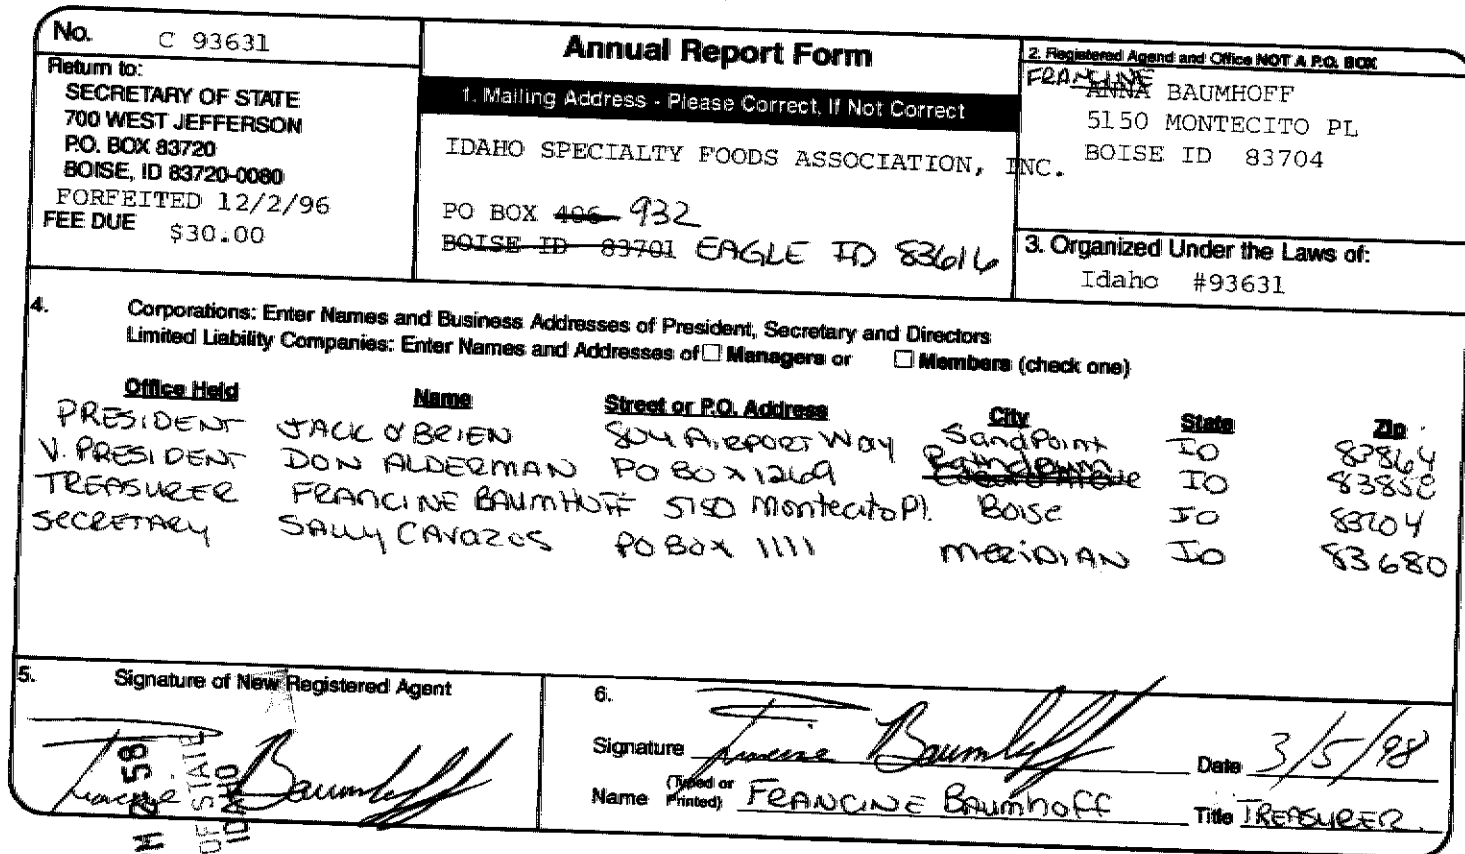 No. C 93631
Return to:
SECRETARY OF STATE
700 WEST JEFFERSON
P.O. BOX 83720
BOISE, ID 83720-0080
FORFEITED 12/2/96
FEE DUE $30.00
Annual Report Form
1. Mailing Address - Please Correct, If Not Correct
IDAHO SPECIALTY FOODS ASSOCIATION, INC.
PO BOX 406 932
BOISE ID 83701 EAGLE ID 83616
2. Registered Agend and Office NOT A P.O. BOX
FRANCINE
ANNA BAUMHOFF
5150 MONTECITO PL
BOISE ID 83704
3. Organized Under the Laws of:
Idaho #93631
4. Corporations: Enter Names and Business Addresses of President, Secretary and Directors
Limited Liability Companies: Enter Names and Addresses of ☐ Managers or ☐ Members (check one)
Office Held Name Street or P.O. Address City State Zip
PRESIDENT JACK O'BRIEN 804 AIRPORT WAY SandPoint ID 83864
V. PRESIDENT DON ALDERMAN PO BOX 1269 Rathdrum ID 83858
TREASURER FRANCINE BAUMHOFF 5150 Montecito Pl. Boise ID 83704
SECRETARY SALLY CAVAZOS PO BOX 1111 MERIDIAN ID 83680
5. Signature of New Registered Agent
Francine Baumhoff
58
OF STATE
IDAHO
6.
Signature Francine Baumhoff Date 3/5/98
Name (Typed or Printed) FRANCINE BAUMHOFF Title TREASURER